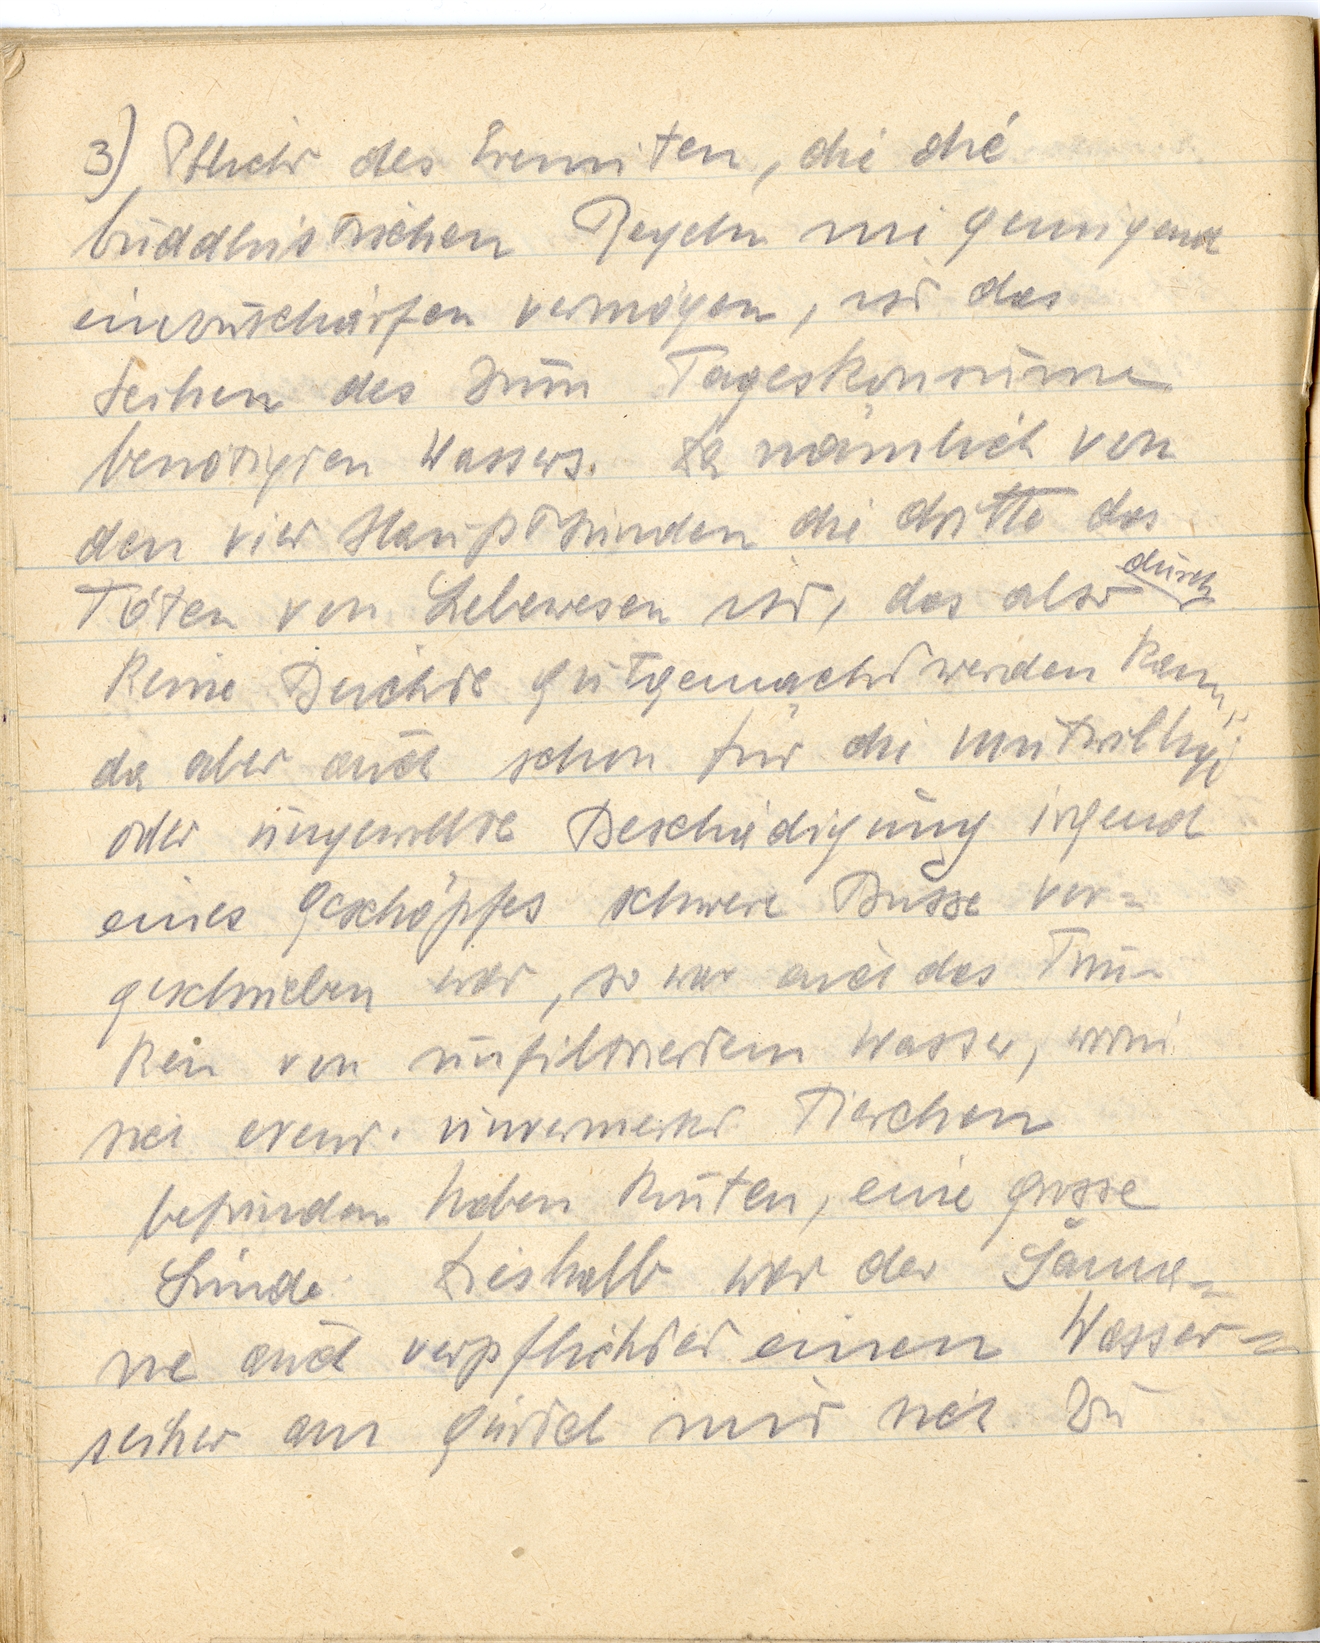 3) Pflicht des Eremiten, die die
buddhistischen Regeln nie genügend
einzuschärfen vermögen, ist das
Seihen des zum Tageskonsume
benötigten Wassers. Da nämlich von
den vier Hauptsünden die dritte das
Töten von Lebewesen ist, das also durch
keine Beichte gutgemacht werden kann,
da aber auch schon für die mutwillige
oder ungewollte Beschädigung irgend
eines Geschöpfes schwere Busse vor-
geschrieben war, so war auch das Trin-
ken von unfiltriertem Wasser, worin
sich event. unvermerkt Tierchen
befunden haben könnten, eine grosse
Sünde. Deshalb war der Šama-
ne auch verpflichtet einen Wasser-
seiher am Gürtel mit sich zu